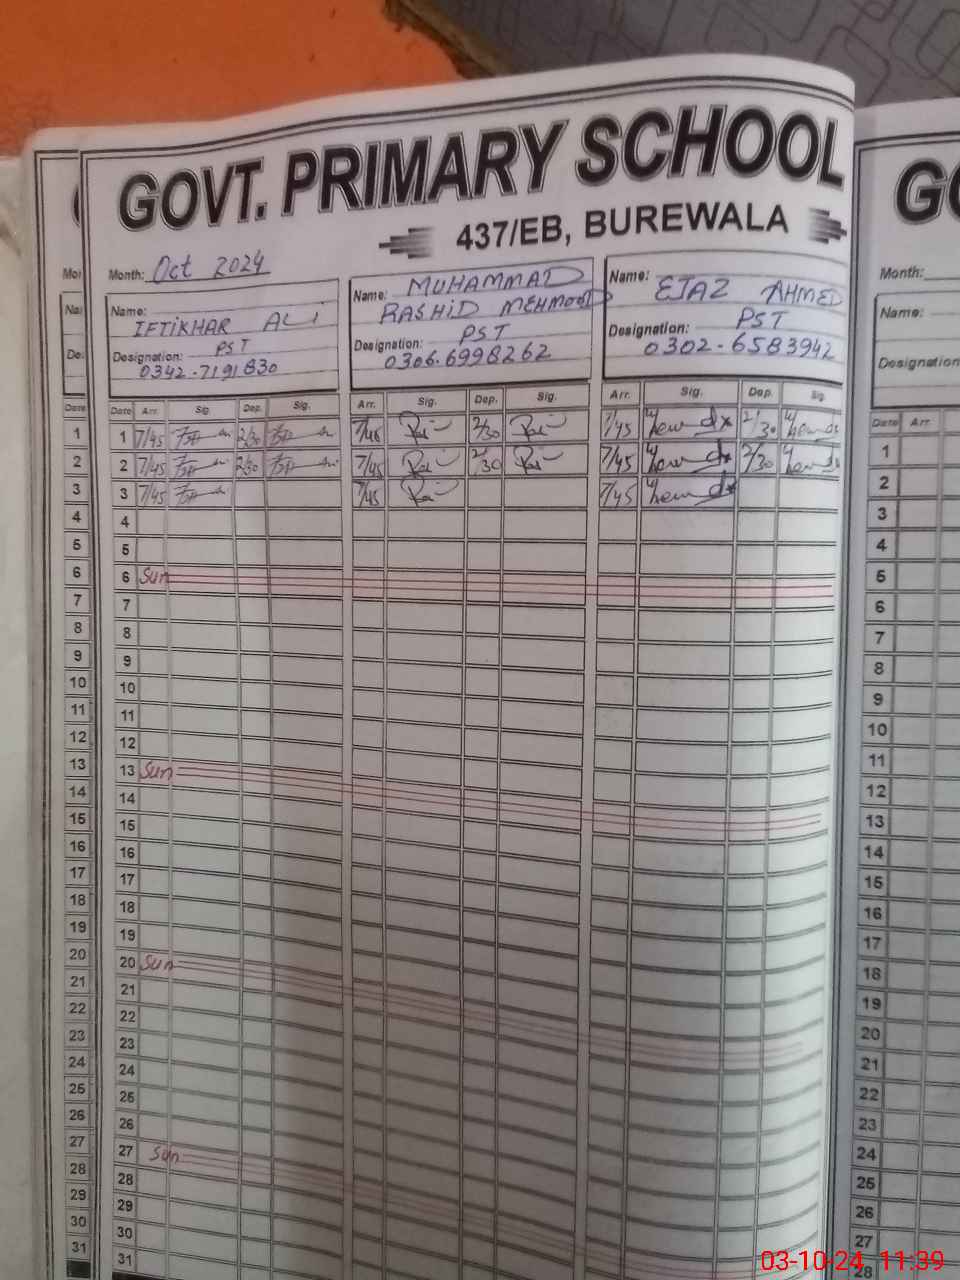 GOVT. PRIMARY SCHOOL
437/EB, BUREWALA
Month: Oct 2024
Name: IFTIKHAR ALI
Designation: PST
0342-7191830
Name: MUHAMMAD
RASHID MEHMOOD
Designation: PST
0306.6998262
Name: EJAZ AHMED
Designation: PST
0302-6583942
Date Arr. Sig. Dep. Sig. Arr. Sig. Dep. Sig. Arr. Sig. Dep. Sig.
1 7/45 2/30 7/45 2/30 7/45 2/30
2 7/45 2/30 7/45 2/30 7/45 2/30
3 7/45 7/45 7/45
4
5
6 Sun
7
8
9
10
11
12
13 Sun
14
15
16
17
18
19
20 Sun
21
22
23
24
25
26
27 Sun
28
29
30
31
Date
1
2
3
4
5
6
7
8
9
10
11
12
13
14
15
16
17
18
19
20
21
22
23
24
25
26
27
28
29
30
31
Month:
Name:
Designation
Date Arr.
1
2
3
4
5
6
7
8
9
10
11
12
13
14
15
16
17
18
19
20
21
22
23
24
25
26
27
28
03-10-24 11:39